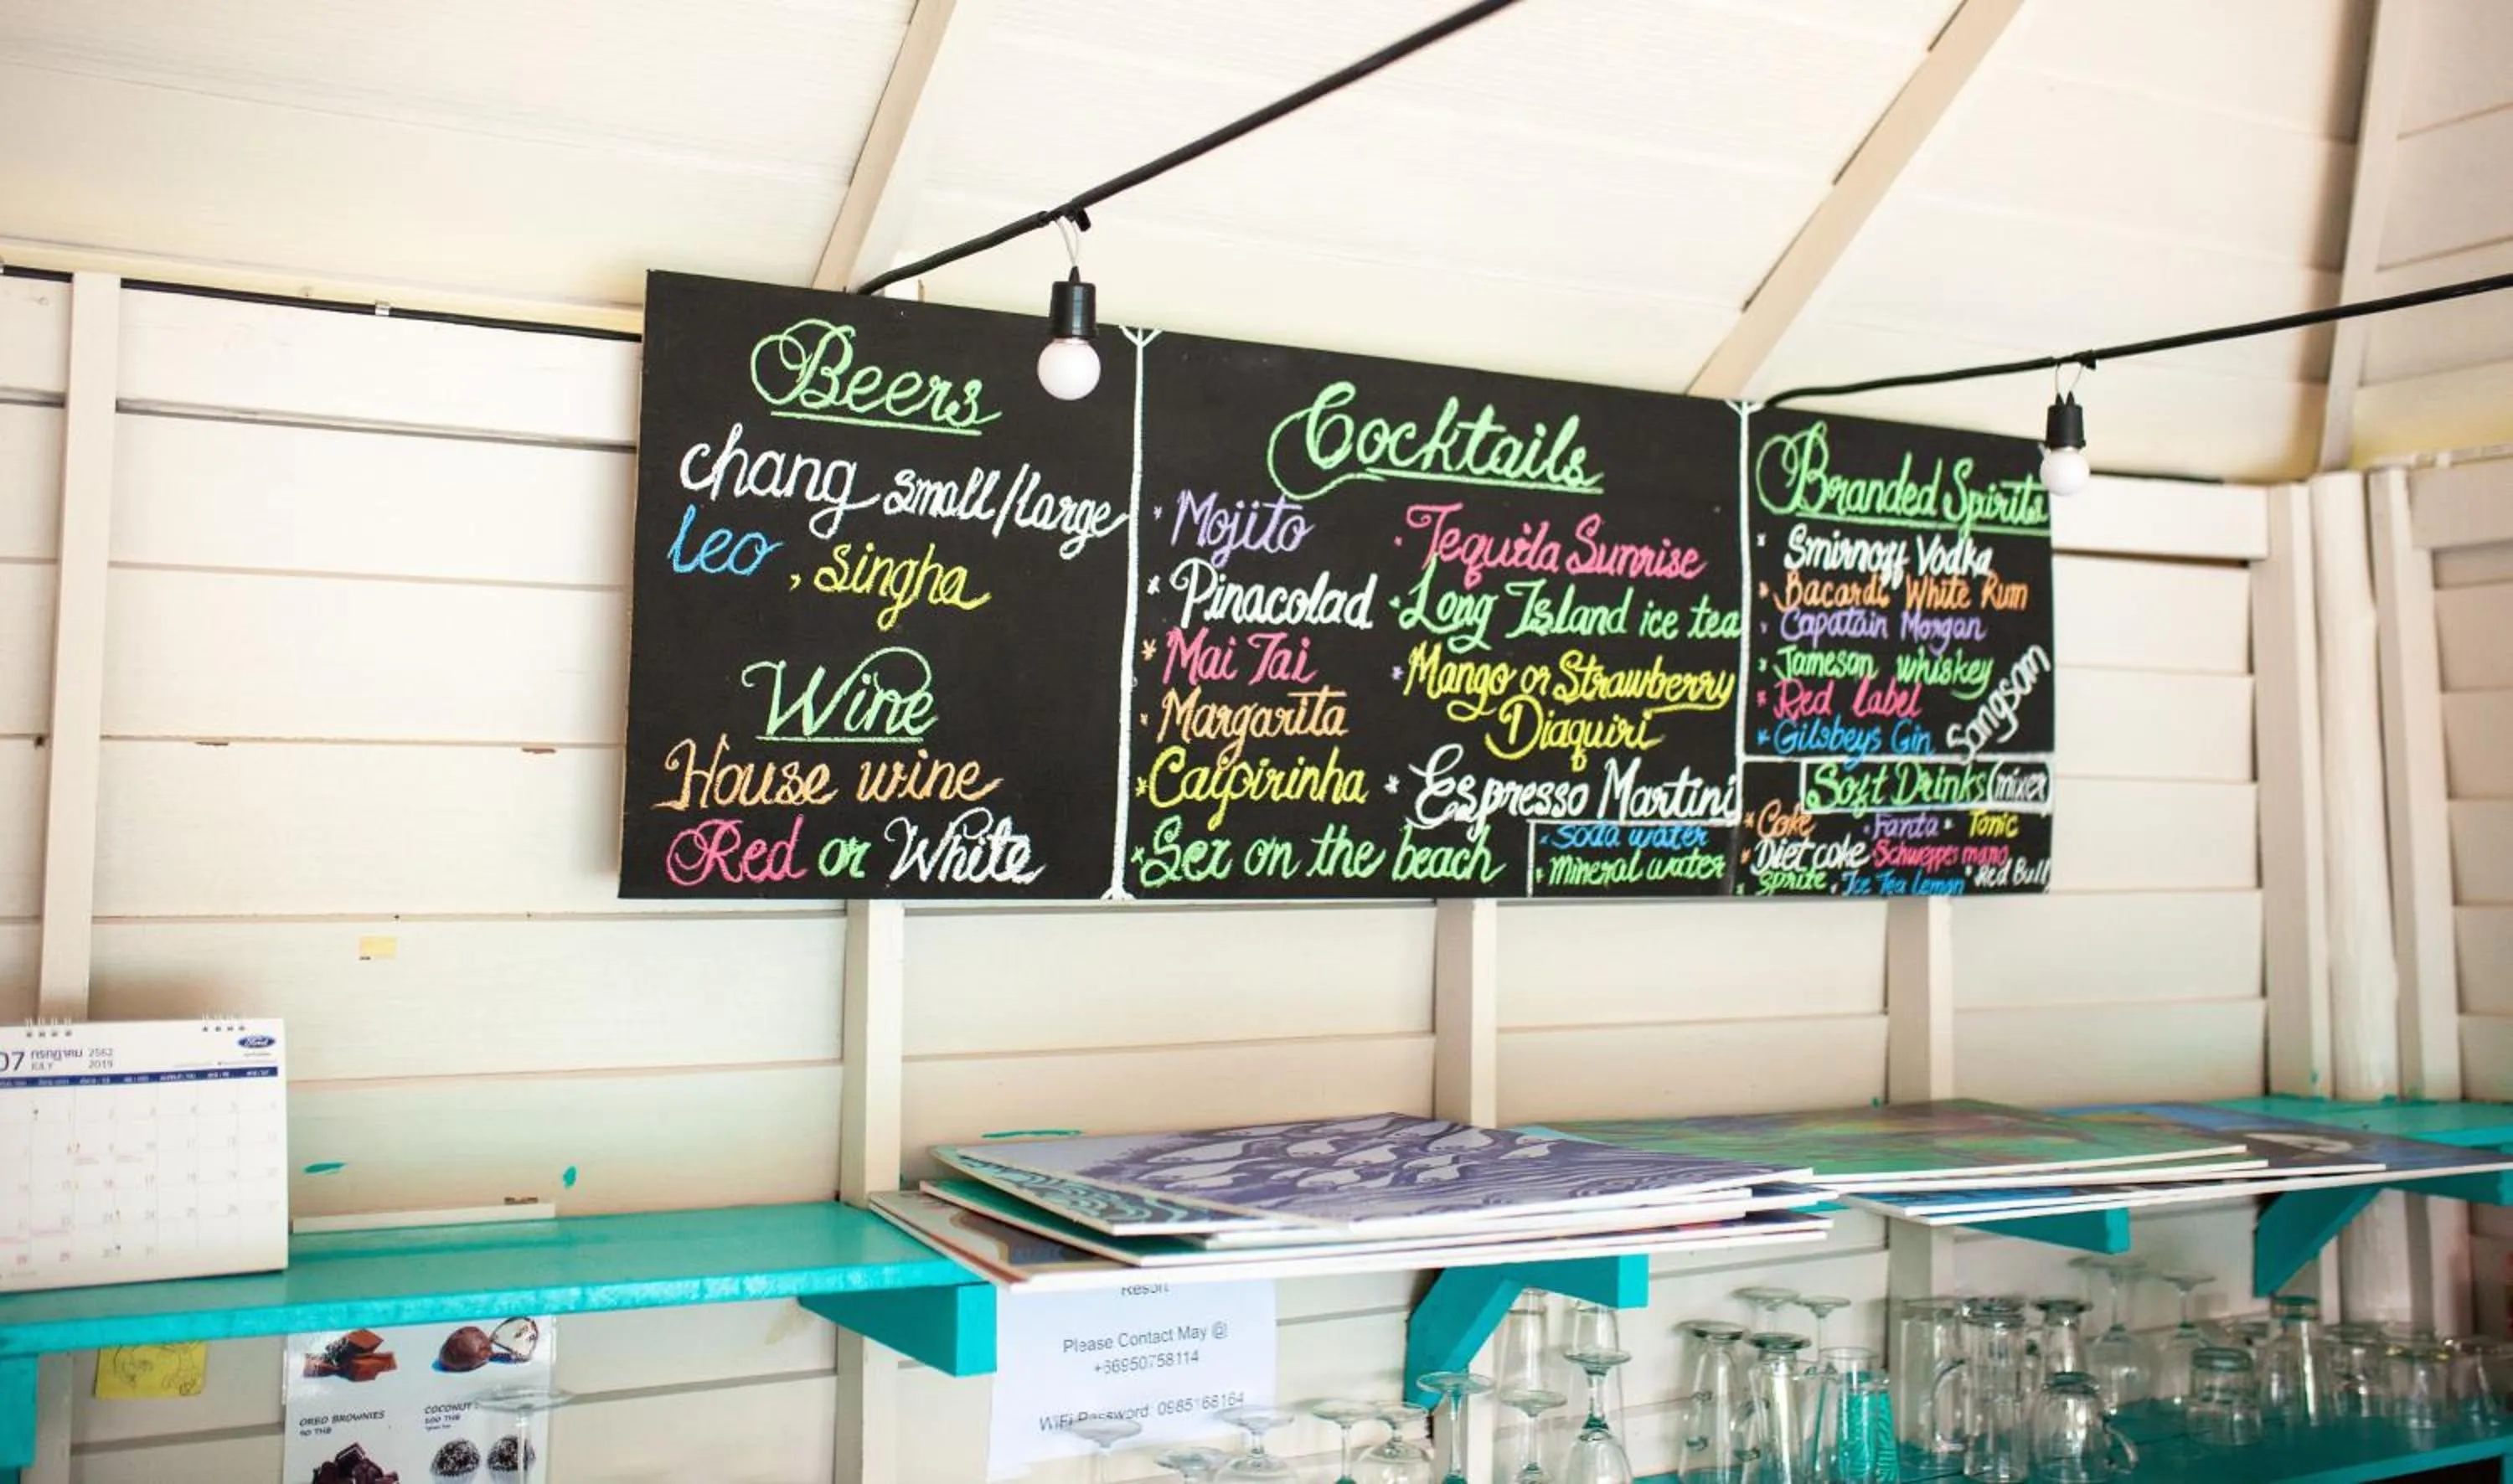 Beers
chang small/large
leo , singha
Wine
House wine
Red or White
Cocktails
* Mojito
* Pinacolad
* Mai Tai
* Margarita
* Caipirinha
* Sex on the beach
· Tequila Sunrise
· Long Island ice tea
* Mango or Strawberry
Diaquiri
* Espresso Martini
· Soda water
· Mineral water
Branded Spirits
* Smirnoff Vodka
* Bacardi White Rum
· Capatain Morgan
* Jameson whiskey
* Red label
* Gilsbeys Gin
Sangsom
Soft Drinks (mixer)
* Coke · Fanta · Tonic
* Diet coke · Schweppes mano
· Sprite · Ice Tea Lemon · Red Bull
07 กรกฎาคม 2562
JULY 2019
Ford
Resort
Please Contact May @
+66950758114
WiFi Password: 0985168164
OREO BROWNIES
90 THB
COCONUT
100 THB